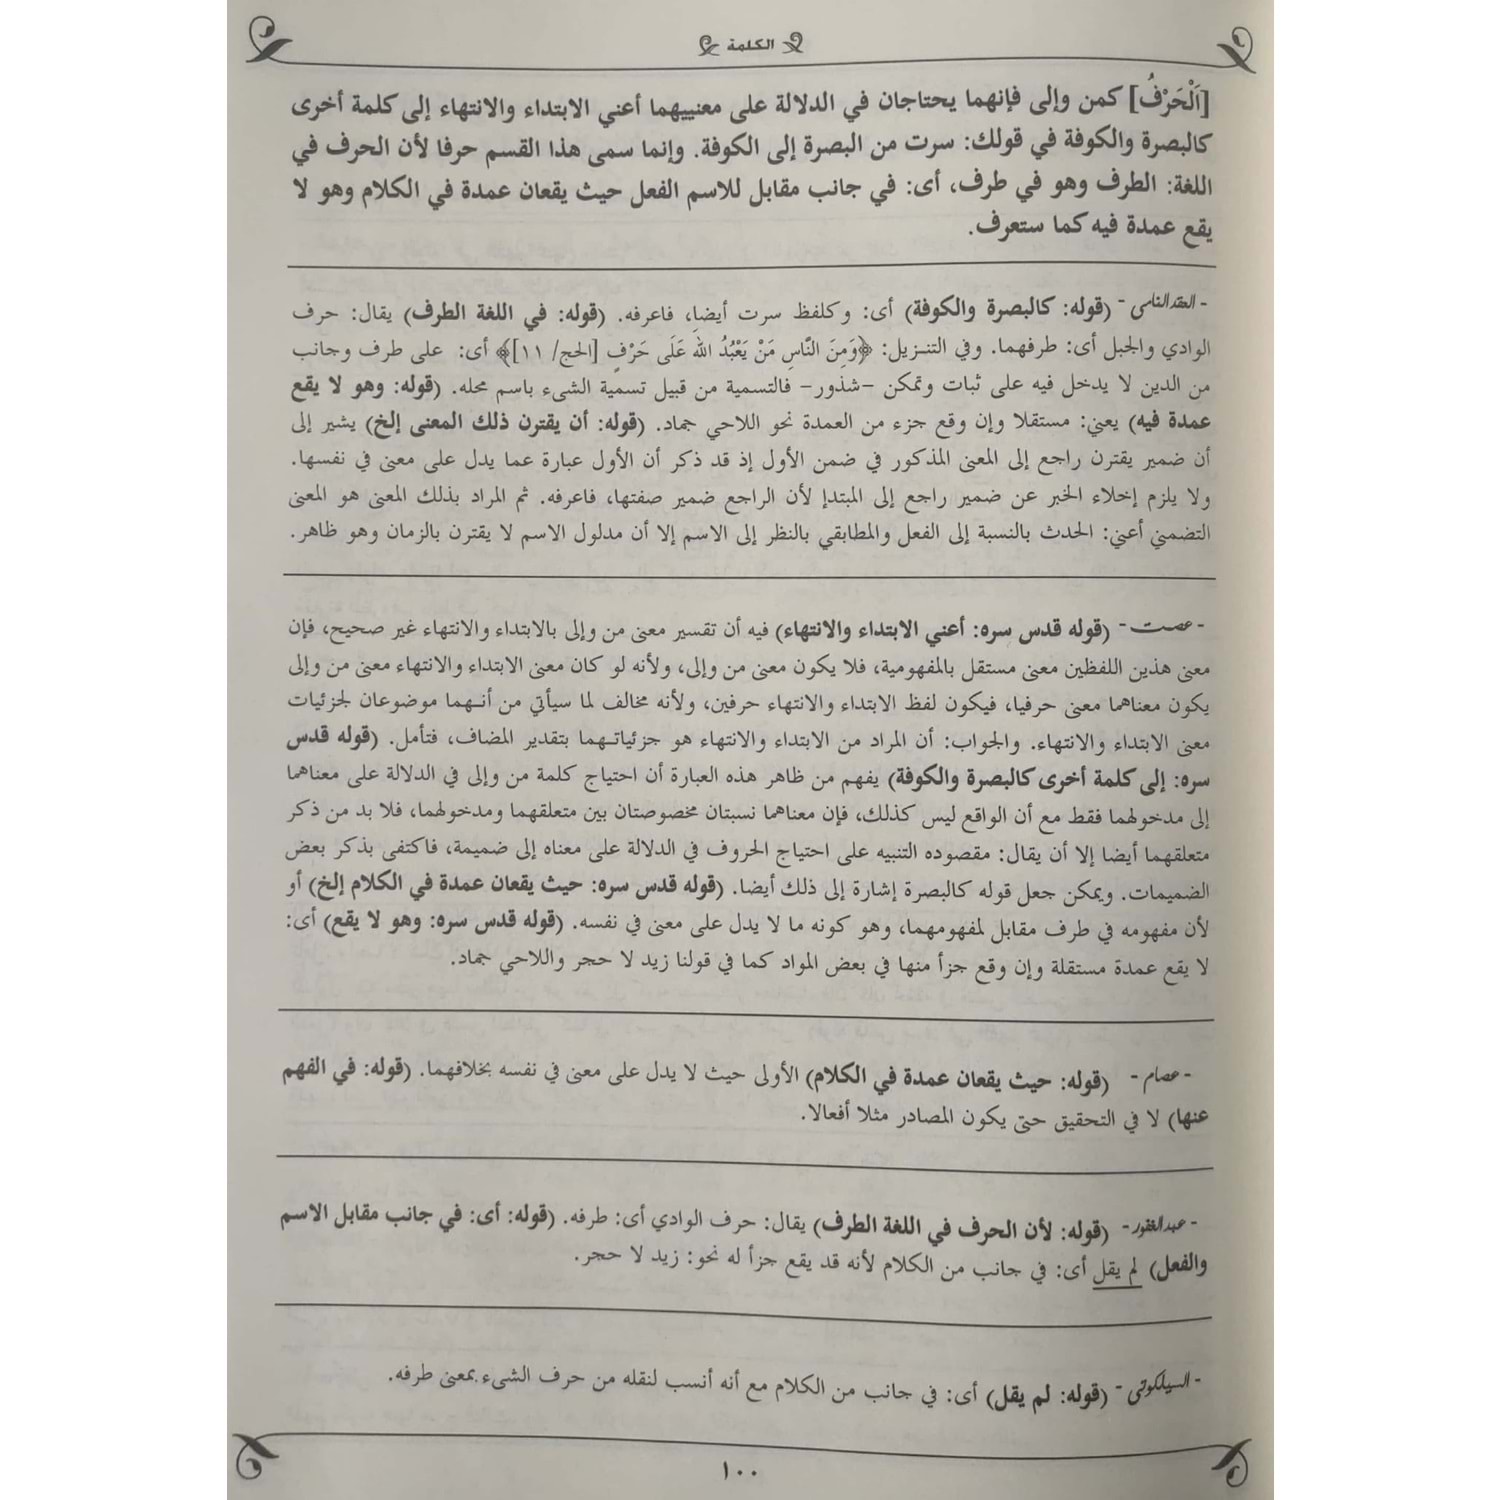 الكلمة
[اَلْحَرْفُ] كمن وإلى فإنهما يحتاجان في الدلالة على معنييهما أعني الابتداء والانتهاء إلى كلمة أخرى
كالبصرة والكوفة في قولك: سرت من البصرة إلى الكوفة. وإنما سمى هذا القسم حرفا لأن الحرف في
اللغة: الطرف وهو في طرف، أى: في جانب مقابل للاسم الفعل حيث يقعان عمدة في الكلام وهو لا
يقع عمدة فيه كما ستعرف.
- العقد النامي - (قوله: كالبصرة والكوفة) أى: وكلفظ سرت أيضا، فاعرفه. (قوله: في اللغة الطرف) يقال: حرف
الوادي والجبل أى: طرفهما. وفي التنـزيل: ﴿وَمِنَ النَّاسِ مَنْ يَعْبُدُ اللهَ عَلَى حَرْفٍ [الحج/ ١١]﴾ أى: على طرف وجانب
من الدين لا يدخل فيه على ثبات وتمكن –شذور– فالتسمية من قبيل تسمية الشىء باسم محله. (قوله: وهو لا يقع
عمدة فيه) يعني: مستقلا وإن وقع جزء من العمدة نحو اللاحي جماد. (قوله: أن يقترن ذلك المعنى إلخ) يشير إلى
أن ضمير يقترن راجع إلى المعنى المذكور في ضمن الأول إذ قد ذكر أن الأول عبارة عما يدل على معنى في نفسها.
ولا يلزم إخلاء الخبر عن ضمير راجع إلى المبتدإ لأن الراجع ضمير صفتها، فاعرفه. ثم المراد بذلك المعنى هو المعنى
التضمني أعني: الحدث بالنسبة إلى الفعل والمطابقي بالنظر إلى الاسم إلا أن مدلول الاسم لا يقترن بالزمان وهو ظاهر.
- عصمت - (قوله قدس سره: أعني الابتداء والانتهاء) فيه أن تقسير معنى من وإلى بالابتداء والانتهاء غير صحيح، فإن
معنى هذين اللفظين معنى مستقل بالمفهومية، فلا يكون معنى من وإلى، ولأنه لو كان معنى الابتداء والانتهاء معنى من وإلى
يكون معناهما معنى حرفيا، فيكون لفظ الابتداء والانتهاء حرفين، ولأنه مخالف لما سيأتي من أنـهما موضوعان لجزئيات
معنى الابتداء والانتهاء. والجواب: أن المراد من الابتداء والانتهاء هو جزئياتـهما بتقدير المضاف، فتأمل. (قوله قدس
سره: إلى كلمة أخرى كالبصرة والكوفة) يفهم من ظاهر هذه العبارة أن احتياج كلمة من وإلى في الدلالة على معناهما
إلى مدخولهما فقط مع أن الواقع ليس كذلك، فإن معناهما نسبتان مخصوصتان بين متعلقهما ومدخولهما، فلا بد من ذكر
متعلقهما أيضا إلا أن يقال: مقصوده التنبيه على احتياج الحروف في الدلالة على معناه إلى ضميمة، فاكتفى بذكر بعض
الضميمات. ويمكن جعل قوله كالبصرة إشارة إلى ذلك أيضا. (قوله قدس سره: حيث يقعان عمدة في الكلام إلخ) أو
لأن مفهومه في طرف مقابل لمفهومهما، وهو كونه ما لا يدل على معنى في نفسه. (قوله قدس سره: وهو لا يقع) أى:
لا يقع عمدة مستقلة وإن وقع جزأ منها في بعض المواد كما في قولنا زيد لا حجر واللاحي جماد.
- عصام - (قوله: حيث يقعان عمدة في الكلام) الأولى حيث لا يدل على معنى في نفسه بخلافهما. (قوله: في الفهم
عنها) لا في التحقيق حتى يكون المصادر مثلا أفعالا.
- عبد الغفور - (قوله: لأن الحرف في اللغة الطرف) يقال: حرف الوادي أى: طرفه. (قوله: أى: في جانب مقابل الاسم
والفعل) لم يقل أى: في جانب من الكلام لأنه قد يقع جزأ له نحو: زيد لا حجر.
- السيلكوتى - (قوله: لم يقل) أى: في جانب من الكلام مع أنه أنسب لنقله من حرف الشىء بمعنى طرفه.
١٠٠